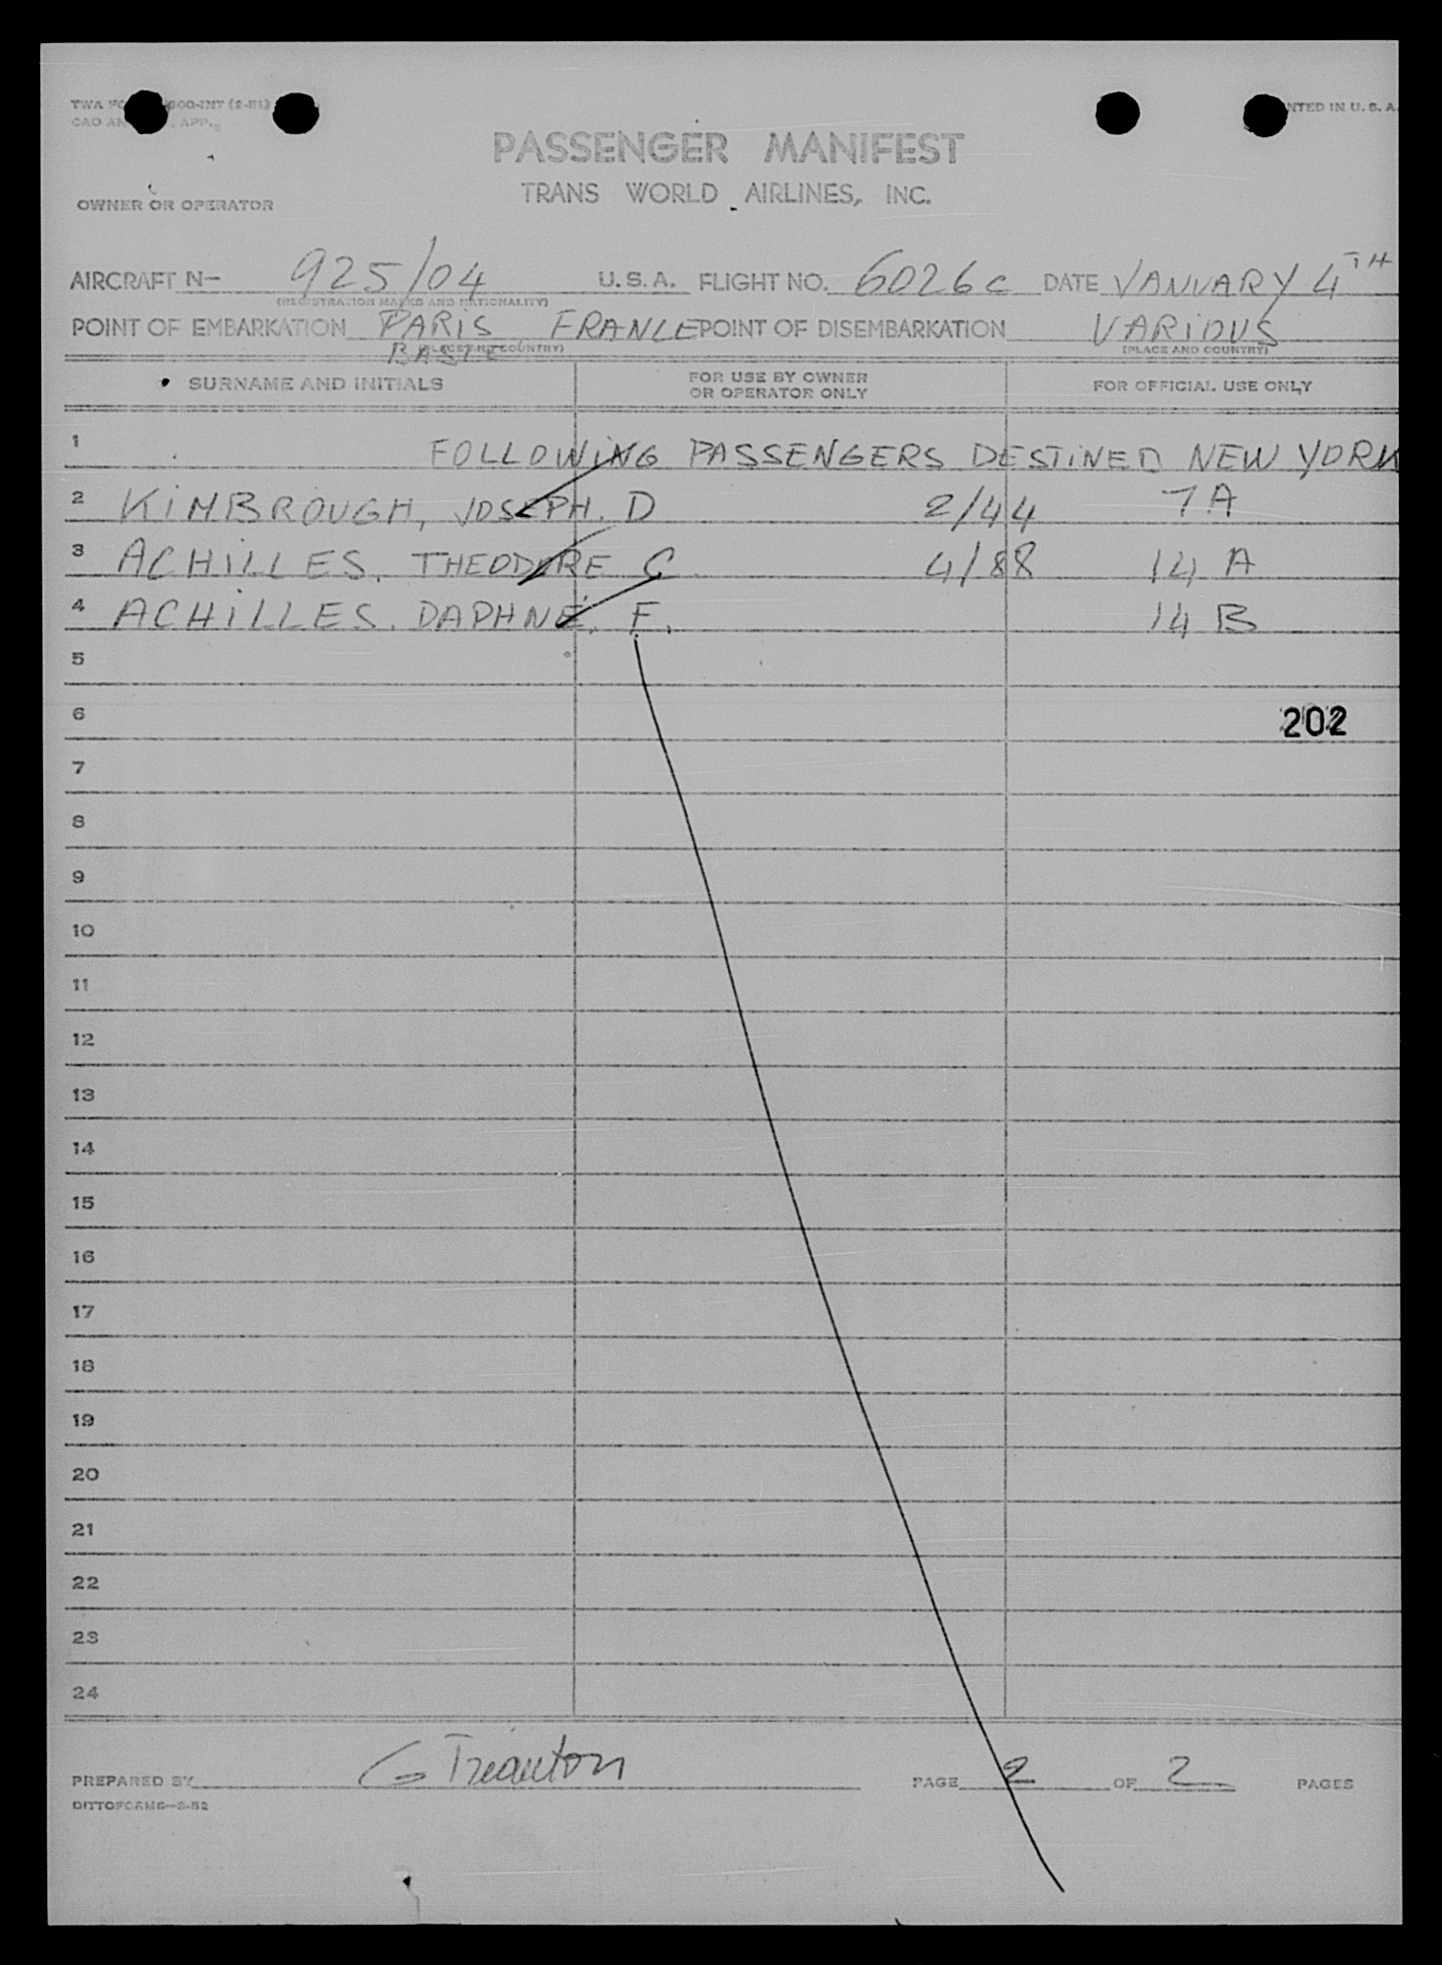 TWA 00-INT (2-51) NTED IN U. S. A.
CAO AN APP.
PASSENGER MANIFEST
OWNER OR OPERATOR TRANS WORLD AIRLINES, INC.
AIRCRAFT N— 925/04 U. S. A. FLIGHT NO. 6026C DATE JANUARY 4TH
(REGISTRATION MARKS AND NATIONALITY)
POINT OF EMBARKATION PARIS, FRANCE POINT OF DISEMBARKATION VARIOUS
(PLACE AND COUNTRY) (PLACE AND COUNTRY)
SURNAME AND INITIALS FOR USE BY OWNER OR OPERATOR ONLY FOR OFFICIAL USE ONLY
1 FOLLOWING PASSENGERS DESTINED NEW YORK
2 KIMBROUGH, JOSEPH. D 2/44 7A
3 ACHILLES. THEODORE C 4/88 14 A
4 ACHILLES. DAPHNE. F. 14 B
5
6 202
7
8
9
10
11
12
13
14
15
16
17
18
19
20
21
22
23
24
PREPARED BY PAGE 2 OF 2 PAGES
DITTOFORMS—2-52